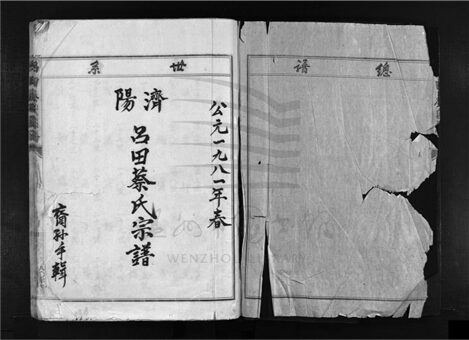 總譜
世系
公元一九八一年春
濟陽
呂田蔡氏宗譜
裔孫手輯